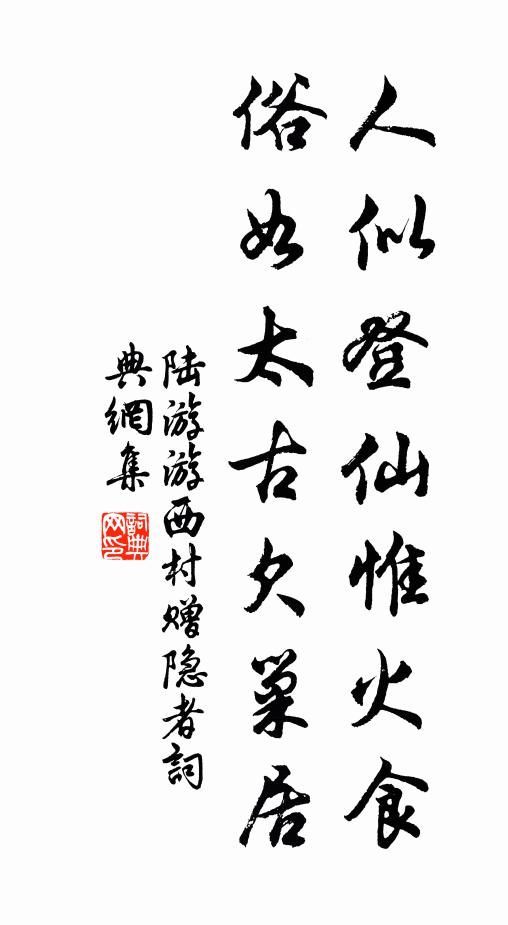 人似登仙惟火食
俗如太古欠巢居
陆游游西村赠隐者詞
典網集
詞典
网印